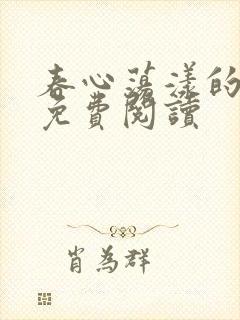 春心蕩漾的
免費閱讀
肖為群